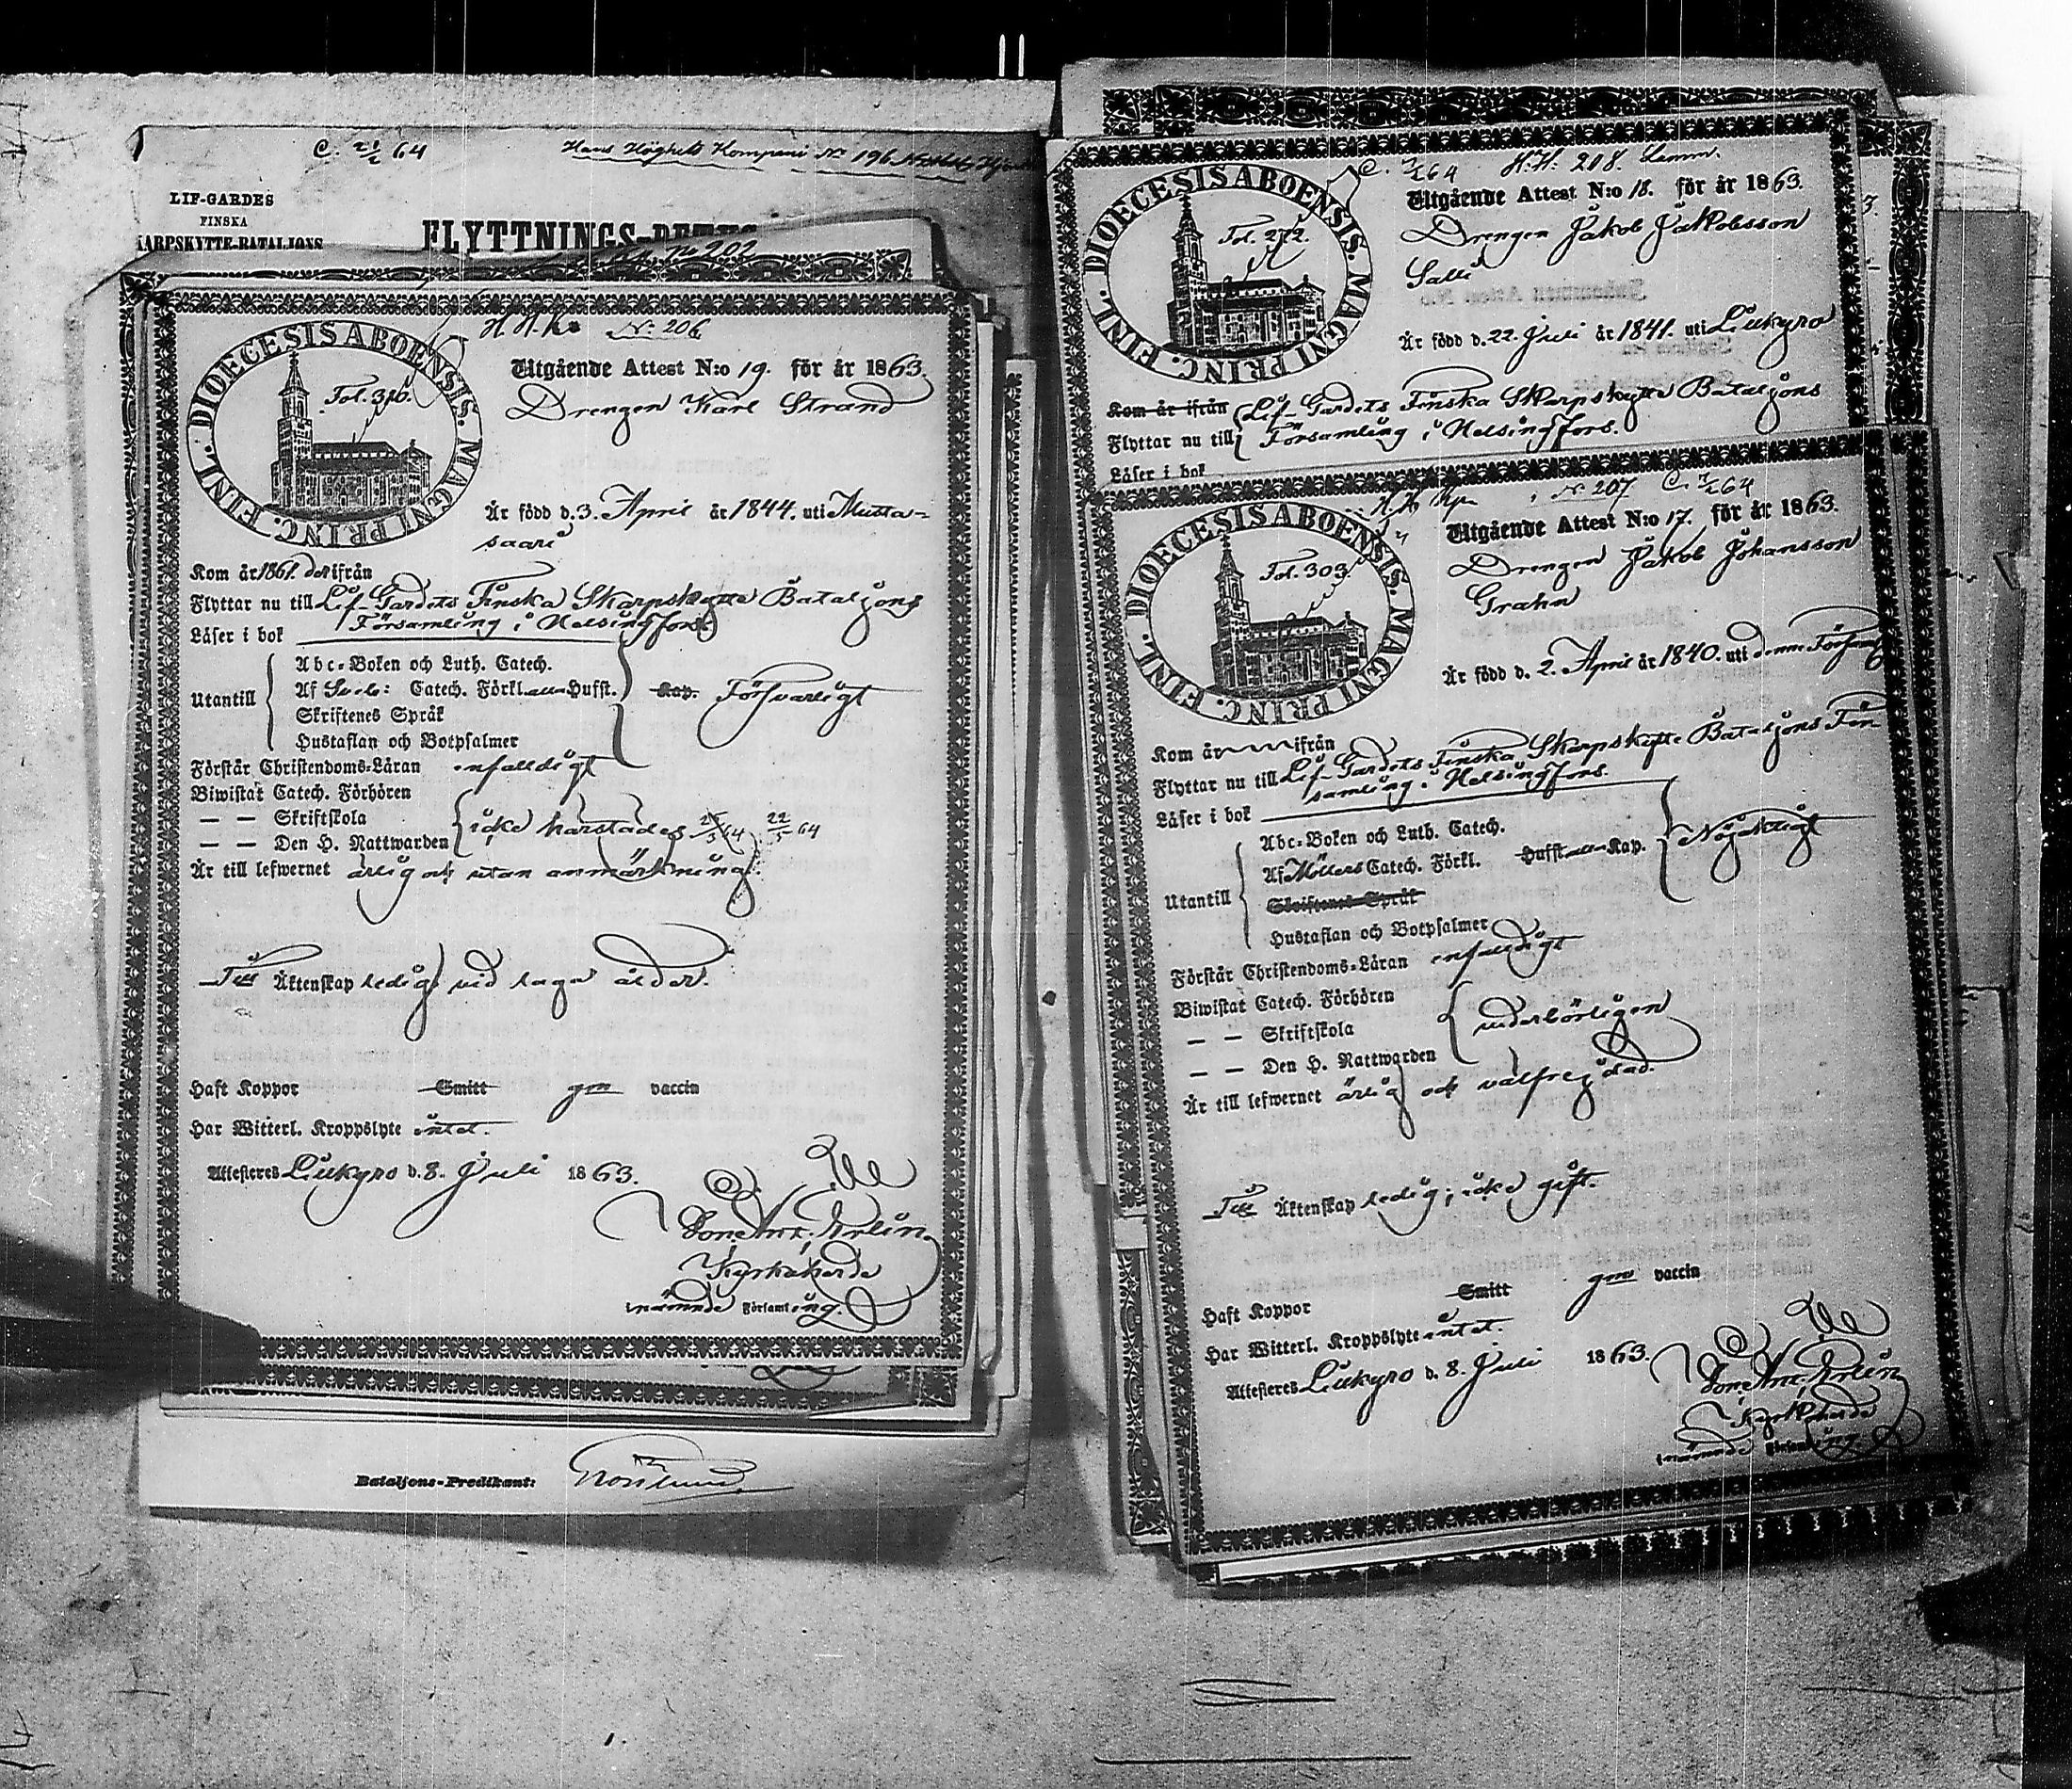 C. 2 1/2 64
Hans Höghets Kompani No 196
LIF-GARDES
FINSKA
KARPSKYTTE-BATALJONS
FLYTTNINGS-BETYG
No 202
H. H. K. No 206
DIOECESIS ABOENSIS. MAGNI PRINC. FINL.
Fol. 316.
Utgående Attest N:o 19. för år 1863.
Drengen Karl Strand
Är född d. 3. April år 1844. uti Musta-
saari
Kom år 1861. ifrån
Flyttar nu till Lif-Gardets Finska Skarpskytte Bataljons
Församling i Helsingfors.
Läser i bok
Utantill
Abc-Boken och Luth. Catech.
Af Sveb: Catech. Förkl. Hufst.
Kap. Försvarligt
Skriftenes Språk
Hustaflan och Botpsalmer
Förstår Christendoms-Läran enfalldigt
Biwistat Catech. Förhören
— — Skriftskola
— — Den H. Nattwarden
icke härstädes 22/5 64
Är till lefwernet ärlig och utan anmärkning.
Till Äktenskap ledig vid laga ålder.
Haft Koppor Smitt gm vaccin
Har Witterl. Kroppslyte intet.
Attesteres Lillkyro d. 8. Juli 1863.
Kyrkoherde
i nämnde Församling.
Bataljons-Predikant:
C. 2/2 64 H. H. 208.
DIOECESIS ABOENSIS. MAGNI PRINC. FINL.
Fol. 272.
Utgående Attest N:o 18. för år 1863.
Drengen Jakob Jakobsson
Salli
Är född d. 22. Juli år 1841. uti Lillkyro
Kom år ifrån
Flyttar nu till Lif-Gardets Finska Skarpskytte Bataljons
Församling i Helsingfors.
Läser i bok
N. 207 C. 2/2 64
DIOECESIS ABOENSIS. MAGNI PRINC. FINL.
Fol. 303.
Utgående Attest N:o 17. för år 1863.
Drengen Jakob Johansson
Grahn
Är född d. 2. April år 1840. uti denna Församl.
Kom år ifrån
Flyttar nu till Lif-Gardets Finska Skarpskytte Bataljons För-
samling i Helsingfors.
Läser i bok
Utantill
Abc-Boken och Luth. Catech.
Af Möllers Catech. Förkl. Hufst. Kap.
Nöjaktigt
Skriftenes Språk
Hustaflan och Botpsalmer
Förstår Christendoms-Läran enfalldigt
Biwistat Catech. Förhören
— — Skriftskola
— — Den H. Nattwarden
vederbörligen
Är till lefwernet ärlig och välfrejdad.
Till Äktenskap ledig; icke gift.
Haft Koppor Smitt gm vaccin
Har Witterl. Kroppslyte intet.
Attesteres Lillkyro d. 8. Juli 1863.
Kyrkoherde
i nämnde Församling.